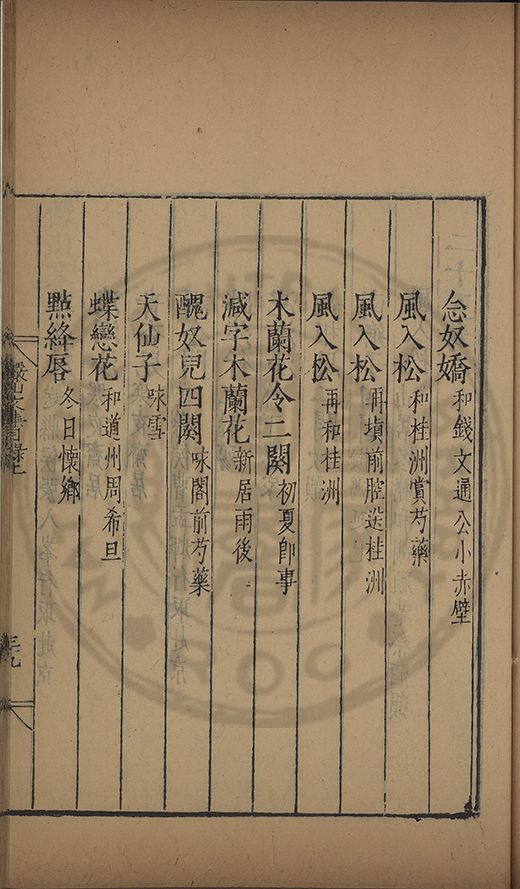 念奴嬌 和錢文通公小赤壁
風入松 和桂洲賞芍藥
風入松 再填前腔送桂洲
風入松 再和桂洲
木蘭花令二闋 初夏即事
減字木蘭花 新居雨後
醜奴兒四闋 咏閣前芍藥
天仙子 咏雪
蝶戀花 和道州周希旦
點絳唇 冬日懷鄉